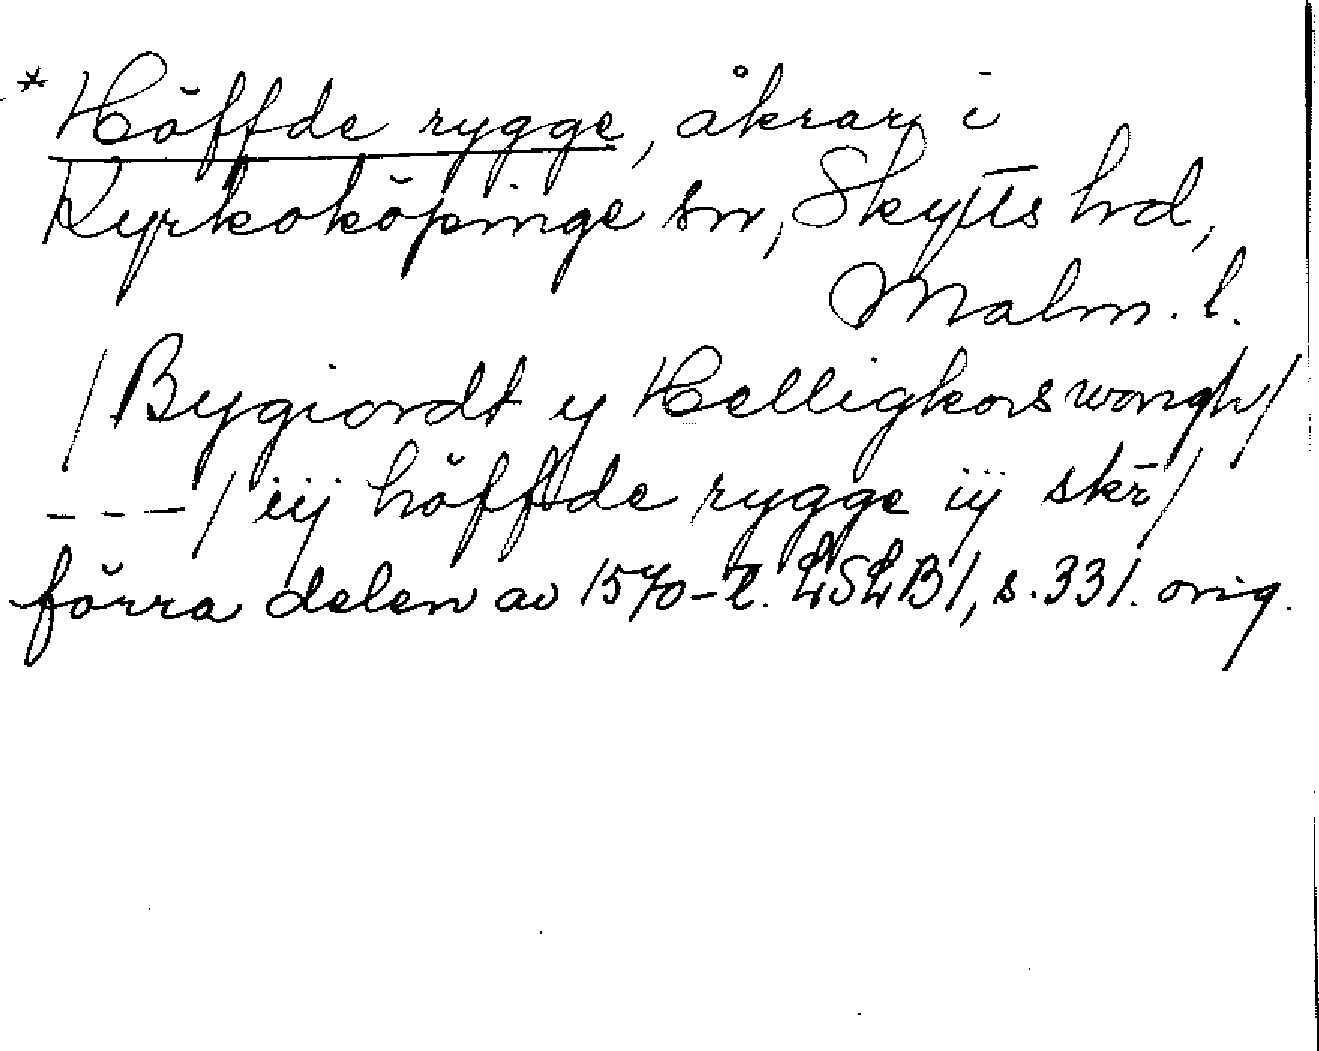 * Höffde rygge, åkrar i
Kyrkoköpinge sn, Skytts hd,
Malm. l.
/Bygiordt y Helligkors wongh/
---/ iij höffde rygge iij skr̄/
förra delen av 1570-t. LSLB1, s. 331. orig.